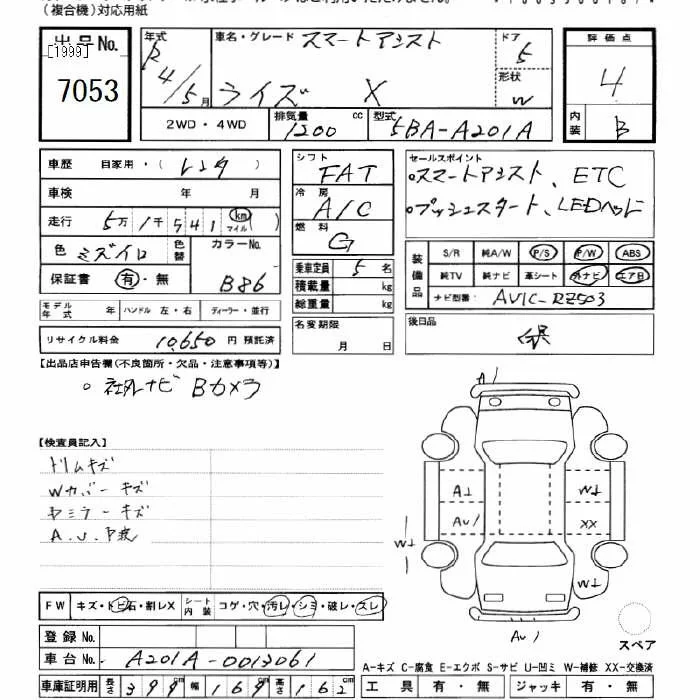 (複合機)対応用紙
出品No.
[1999]
7053
年式 R4/5月
車名・グレード スマートアシスト
ライズ X
ドア 5
形状 W
評価点 4
内装 B
2WD・4WD
排気量 1200 cc
型式 5BA-A201A
車歴 自家用・( レンタ )
車検 年 月
走行 5万1千541 km マイル ( )
色 ミズイロ
色替
カラーNo. B86
保証書 有・無
モデル年式 年 ハンドル 左・右 ディーラー・並行
リサイクル料金 10,650円 預託済
シフト FAT
冷房 A/C
燃料 G
乗車定員 5名
積載量 kg
総重量 kg
名変期限 月 日
セールスポイント
○スマートアシスト、ETC
○プッシュスタート、LEDヘッド
装備品
S/R 純A/W P/S P/W ABS
純TV 純ナビ 革シート 外ナビ エアB
ナビ型番: AVIC-RZ503
後日品
保
【出品店申告欄(不良箇所・欠品・注意事項等)】
○ 社外ナビ Bカメラ
【検査員記入】
ドリムキズ
Wカバーキズ
ヤミラーキズ
A.U.P波
A1
A⊥
AU1
W⊥
XX
W⊥
W⊥
W⊥
AU1
スペア
FW キズ・トビ石・割レX シート内装 コゲ・穴・汚レ・シミ・破レ・スレ
登録No.
車台No. A201A-0013061
車庫証明用 長さ 399cm 幅 169cm 高さ 162cm
A-キズ C-腐食 E-エクボ S-サビ U-凹ミ W-補修 XX-交換済
工具 有・無 ジャッキ 有・無